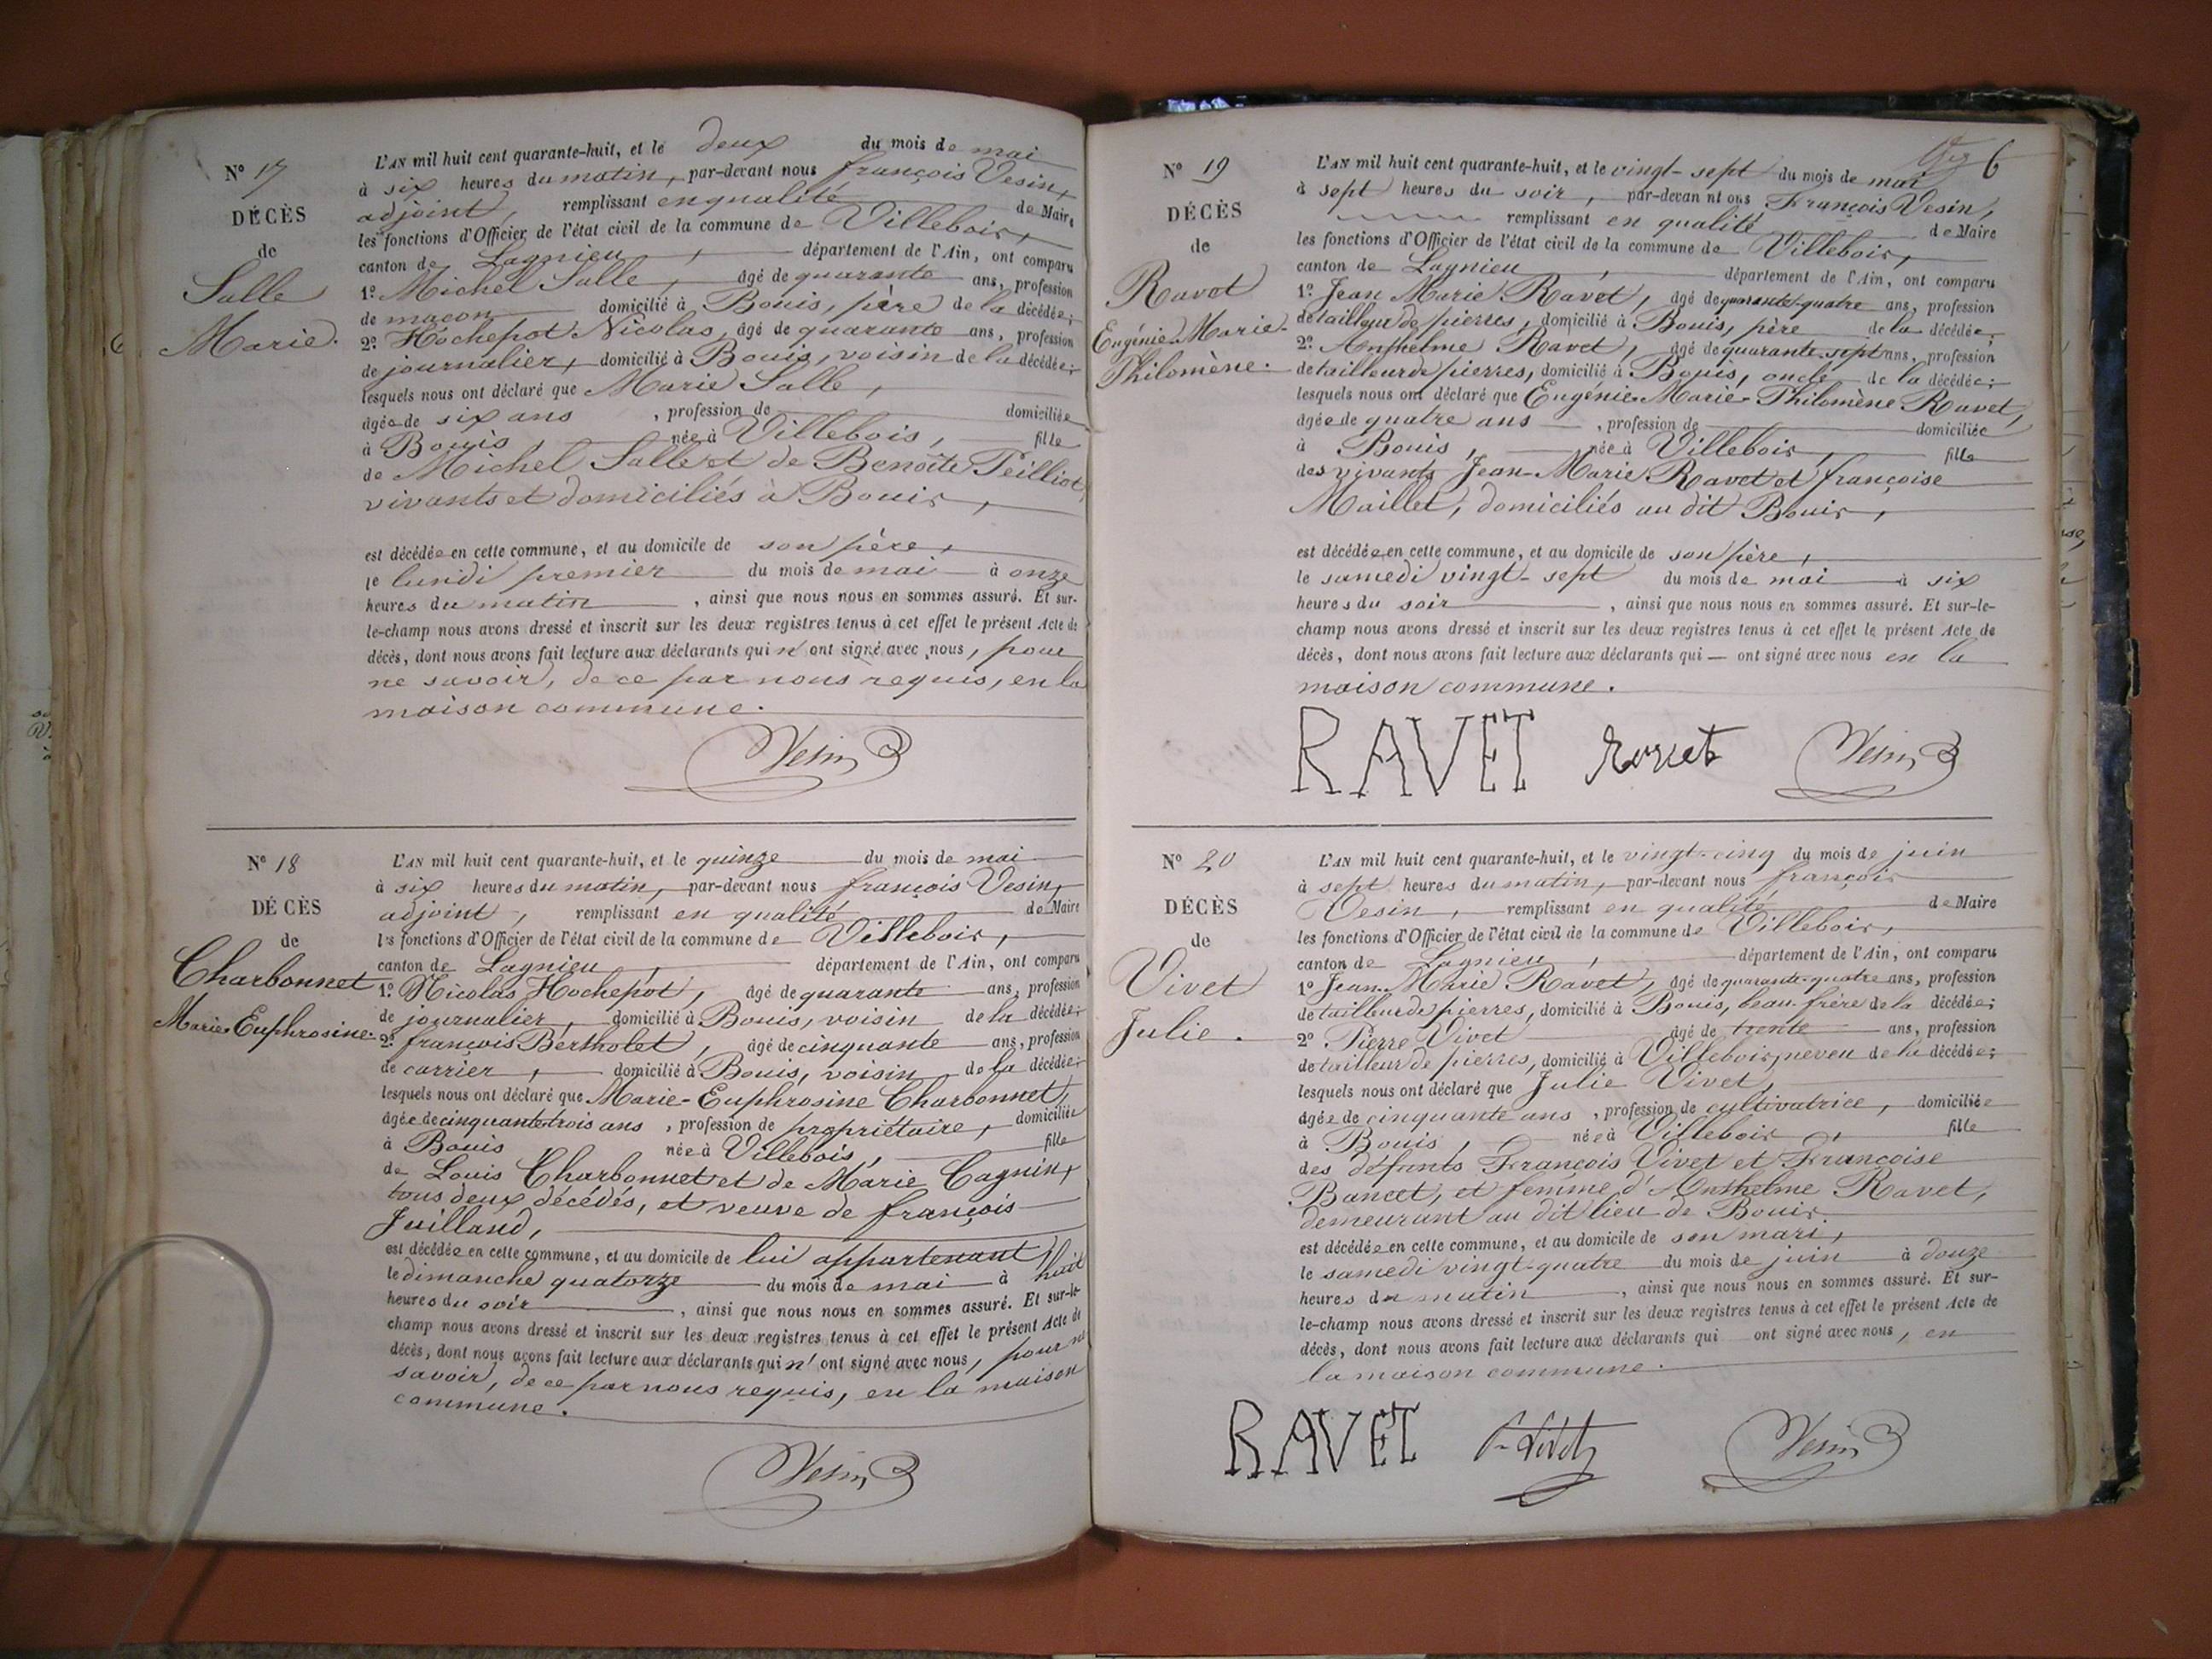 N° 17
DÉCÈS
de
Salle
Marie.
L'AN mil huit cent quarante-huit, et le deux du mois de mai
à six heures du matin, par-devant nous françois Vesin,
adjoint, remplissant en qualité de Maire
les fonctions d'Officier de l'état civil de la commune de Villebois,
canton de Lagnieu, département de l'Ain, ont comparu
1° Michel Salle, âgé de quarante ans, profession
de maçon domicilié à Bouis, père de la décédée;
2° Hochepot Nicolas, âgé de quarante ans, profession
de journalier, domicilié à Bouis, voisin de la décédée;
lesquels nous ont déclaré que Marie Salle,
âgée de six ans, profession de domiciliée
à Bouis née à Villebois, fille
de Michel Salle et de Benoîte Peilliot,
vivants et domiciliés à Bouis,
est décédée en cette commune, et au domicile de son père,
le lundi premier du mois de mai à onze
heures du matin, ainsi que nous nous en sommes assuré. Et sur-
le-champ nous avons dressé et inscrit sur les deux registres tenus à cet effet le présent Acte de
décès, dont nous avons fait lecture aux déclarants qui n'ont signé avec nous, pour
ne savoir, de ce par nous requis, en la
maison commune.
Vesin
N° 18
DÉCÈS
de
Charbonnet
Marie-Euphrosine.
L'AN mil huit cent quarante-huit, et le quinze du mois de mai
à six heures du matin, par-devant nous françois Vesin,
adjoint, remplissant en qualité de Maire
les fonctions d'Officier de l'état civil de la commune de Villebois,
canton de Lagnieu, département de l'Ain, ont comparu
1° Nicolas Hochepot, âgé de quarante ans, profession
de journalier, domicilié à Bouis, voisin de la décédée;
2° françois Bertholet, âgé de cinquante ans, profession
de carrier, domicilié à Bouis, voisin de la décédée;
lesquels nous ont déclaré que Marie-Euphrosine Charbonnet,
âgée de cinquante trois ans, profession de propriétaire, domiciliée
à Bouis née à Villebois, fille
de Louis Charbonnet et de Marie Cagnin,
tous deux décédés, et veuve de françois
Juilland,
est décédée en cette commune, et au domicile de lui appartenant
le dimanche quatorze du mois de mai à huit
heures du soir, ainsi que nous nous en sommes assuré. Et sur-le-
champ nous avons dressé et inscrit sur les deux registres tenus à cet effet le présent Acte de
décès, dont nous avons fait lecture aux déclarants qui n'ont signé avec nous, pour ne
savoir, de ce par nous requis, en la maison
commune.
Vesin
6
N° 19
DÉCÈS
de
Ravet
Eugénie-Marie-
Philomène.
L'AN mil huit cent quarante-huit, et le vingt-sept du mois de mai
à sept heures du soir, par-devant nous François Vesin,
remplissant en qualité de Maire
les fonctions d'Officier de l'état civil de la commune de Villebois,
canton de Lagnieu, département de l'Ain, ont comparu
1° Jean Marie Ravet, âgé de quarante-quatre ans, profession
de tailleur de pierres, domicilié à Bouis, père de la décédée;
2° Anthelme Ravet, âgé de quarante-sept ans, profession
de tailleur de pierres, domicilié à Bouis, oncle de la décédée;
lesquels nous ont déclaré que Eugénie-Marie-Philomène Ravet,
âgée de quatre ans, profession de domiciliée
à Bouis, née à Villebois, fille
des vivants Jean-Marie Ravet et françoise
Maillet, domiciliés au dit Bouis,
est décédée en cette commune, et au domicile de son père,
le samedi vingt-sept du mois de mai à six
heures du soir, ainsi que nous nous en sommes assuré. Et sur-le-
champ nous avons dressé et inscrit sur les deux registres tenus à cet effet le présent Acte de
décès, dont nous avons fait lecture aux déclarants qui — ont signé avec nous en la
maison commune.
RAVET Ravet Vesin
N° 20
DÉCÈS
de
Vivet
Julie.
L'AN mil huit cent quarante-huit, et le vingt-cinq du mois de juin
à sept heures du matin, par-devant nous françois
Vesin, remplissant en qualité de Maire
les fonctions d'Officier de l'état civil de la commune de Villebois,
canton de Lagnieu, département de l'Ain, ont comparu
1° Jean-Marie Ravet, âgé de quarante-quatre ans, profession
de tailleur de pierres, domicilié à Bouis, beau-frère de la décédée;
2° Pierre Vivet âgé de trente ans, profession
de tailleur de pierres, domicilié à Villebois, neveu de la décédée;
lesquels nous ont déclaré que Julie Vivet,
âgée de cinquante ans, profession de cultivatrice, domiciliée
à Bouis, née à Villebois, fille
des défunts François Vivet et Françoise
Bancet, et femme d'Anthelme Ravet,
demeurant au dit lieu de Bouis
est décédée en cette commune, et au domicile de son mari,
le samedi vingt-quatre du mois de juin à douze
heures du matin, ainsi que nous nous en sommes assuré. Et sur-
le-champ nous avons dressé et inscrit sur les deux registres tenus à cet effet le présent Acte de
décès, dont nous avons fait lecture aux déclarants qui ont signé avec nous, en
la maison commune.
RAVET P. Vivet Vesin